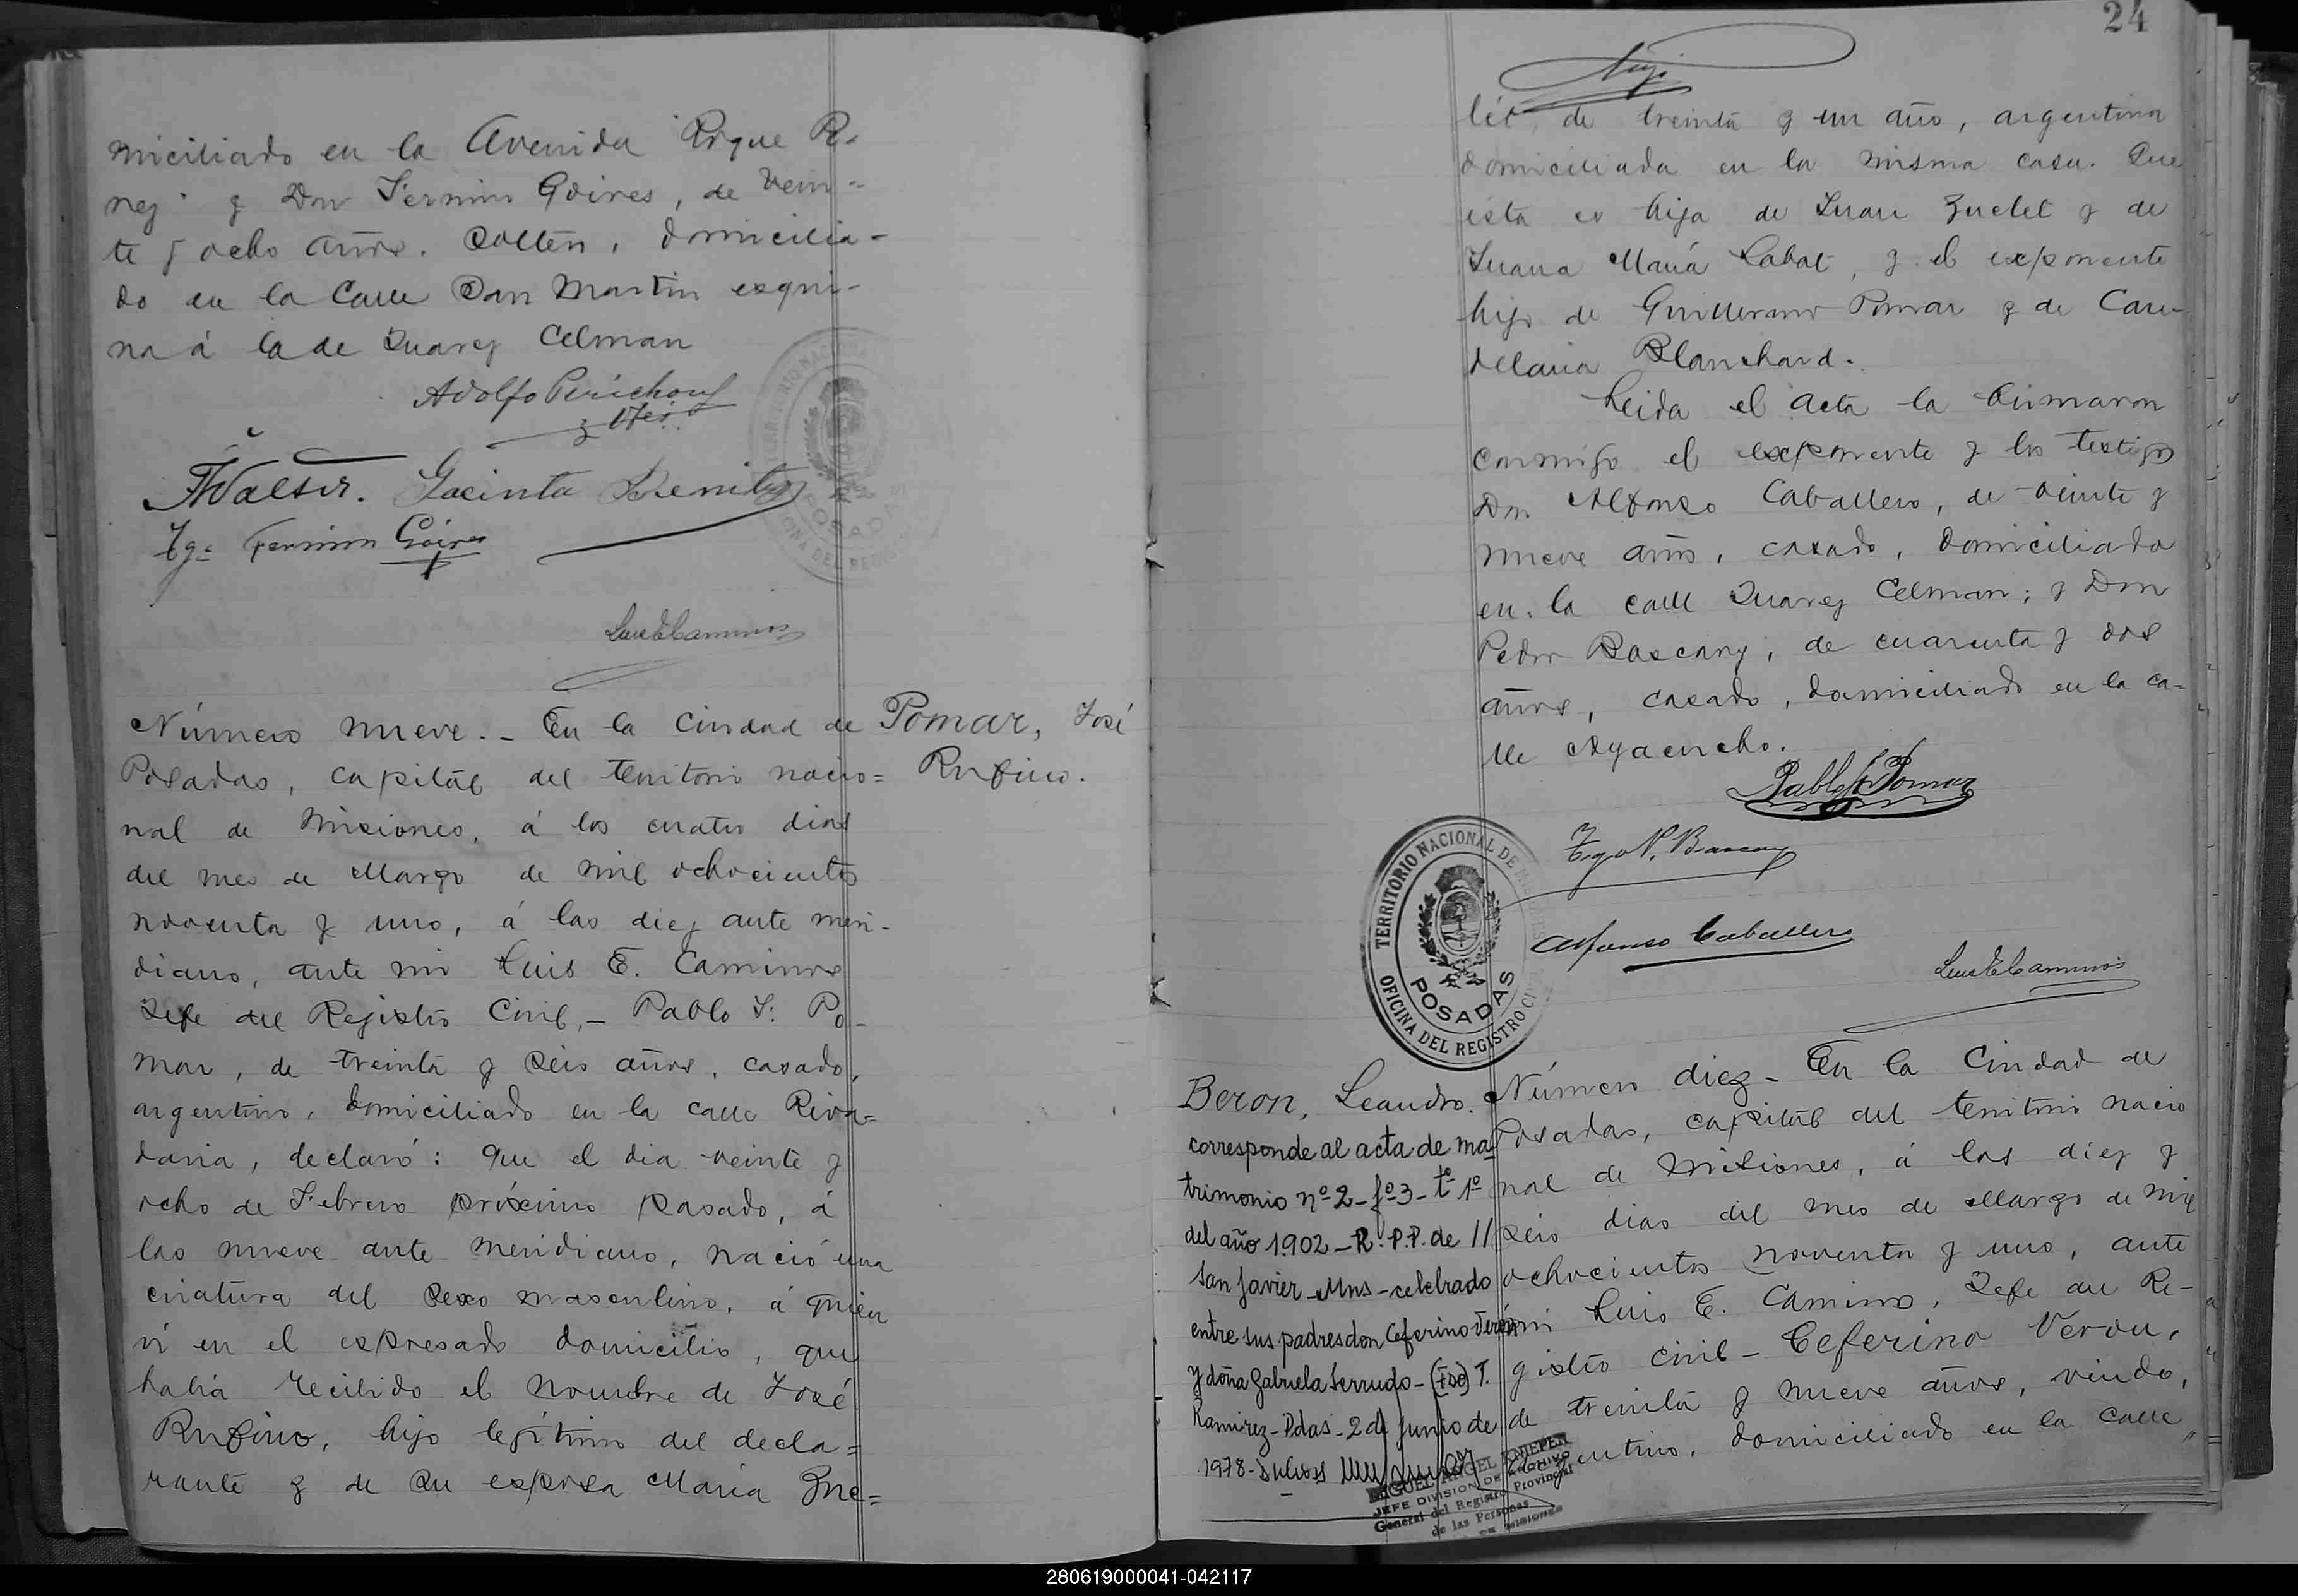 miciliado en la Avenida Roque Pe-
rez y Don Fermin Goires, de vein-
te y ocho años. Soltero, domicilia-
do en la Calle San Martin esqui-
na á la de Juarez Celman
Adolfo Perichon
FWalter. Jacinta Benitez
Tgo Fermin Goires
Luis E Caminos
Pomar, José
Rufino.
Número nueve. - En la Ciudad de
Posadas, capital del territorio nacio=
nal de Misiones, á los cuatro dias
del mes de Marzo de mil ochocientos
noventa y uno, á las diez ante meri-
diano, ante mi Luis E. Caminos
Jefe del Registro Civil, - Pablo F. Po-
mar, de treinta y seis años, casado,
argentino, domiciliado en la calle Riva=
davia, declaró: que el dia veinte y
ocho de Febrero próximo pasado, á
las nueve ante meridiano, nació una
criatura del sexo masculino, á quien
vi en el expresado domicilio, que
habia recibido el nombre de José
Rufino, hijo legítimo del decla=
rante y de su esposa Maria Zue=
24
let, de treinta y un año, argentina
domiciliada en la misma casa. Que
esta es hija de Juan Zuelet y de
Juana Maria Labat, y el exponente
hijo de Guillermo Pomar y de Can-
delaria Blanchard.
Leida el acta la firmaron
conmigo el exponente y los testigos
Don Alfonso Caballero, de veinte y
nueve años, casado, domiciliado
en la calle Juarez Celman; y Don
Pedro Bascary, de cuarenta y dos
años, casado, domiciliado en la ca-
lle Ayacucho.
Pablo F Pomar
Tgo P. Bascary
Alfonso Caballero
Luis E Caminos
TERRITORIO NACIONAL DE MISIONES
POSADAS
OFICINA DEL REGISTRO CIVIL
Beron, Leandro.
corresponde al acta de ma-
trimonio nº 2 - fº 3 - tº 1º
del año 1902 - R.P.P. de //
San Javier - Mns - celebrado
entre sus padres don Ceferino Verón
y doña Gabriela Serrudo - (Fdo) T.
Ramirez - Pdas - 2 de Junio de
1978 -
MIGUEL ANGEL KNIEPER
JEFE DIVISION DE ARCHIVO
General del Registro Provincial
de las Personas
DE MISIONES
Número diez - En la Ciudad de
Posadas, capital del territorio nacio
nal de Misiones, á los diez y
seis dias del mes de Marzo de mil
ochocientos noventa y uno, ante
mi Luis E. Caminos, Jefe del Re-
gistro Civil - Ceferino Veron,
de treinta y nueve años, viudo,
argentino, domiciliado en la calle
280619000041-042117